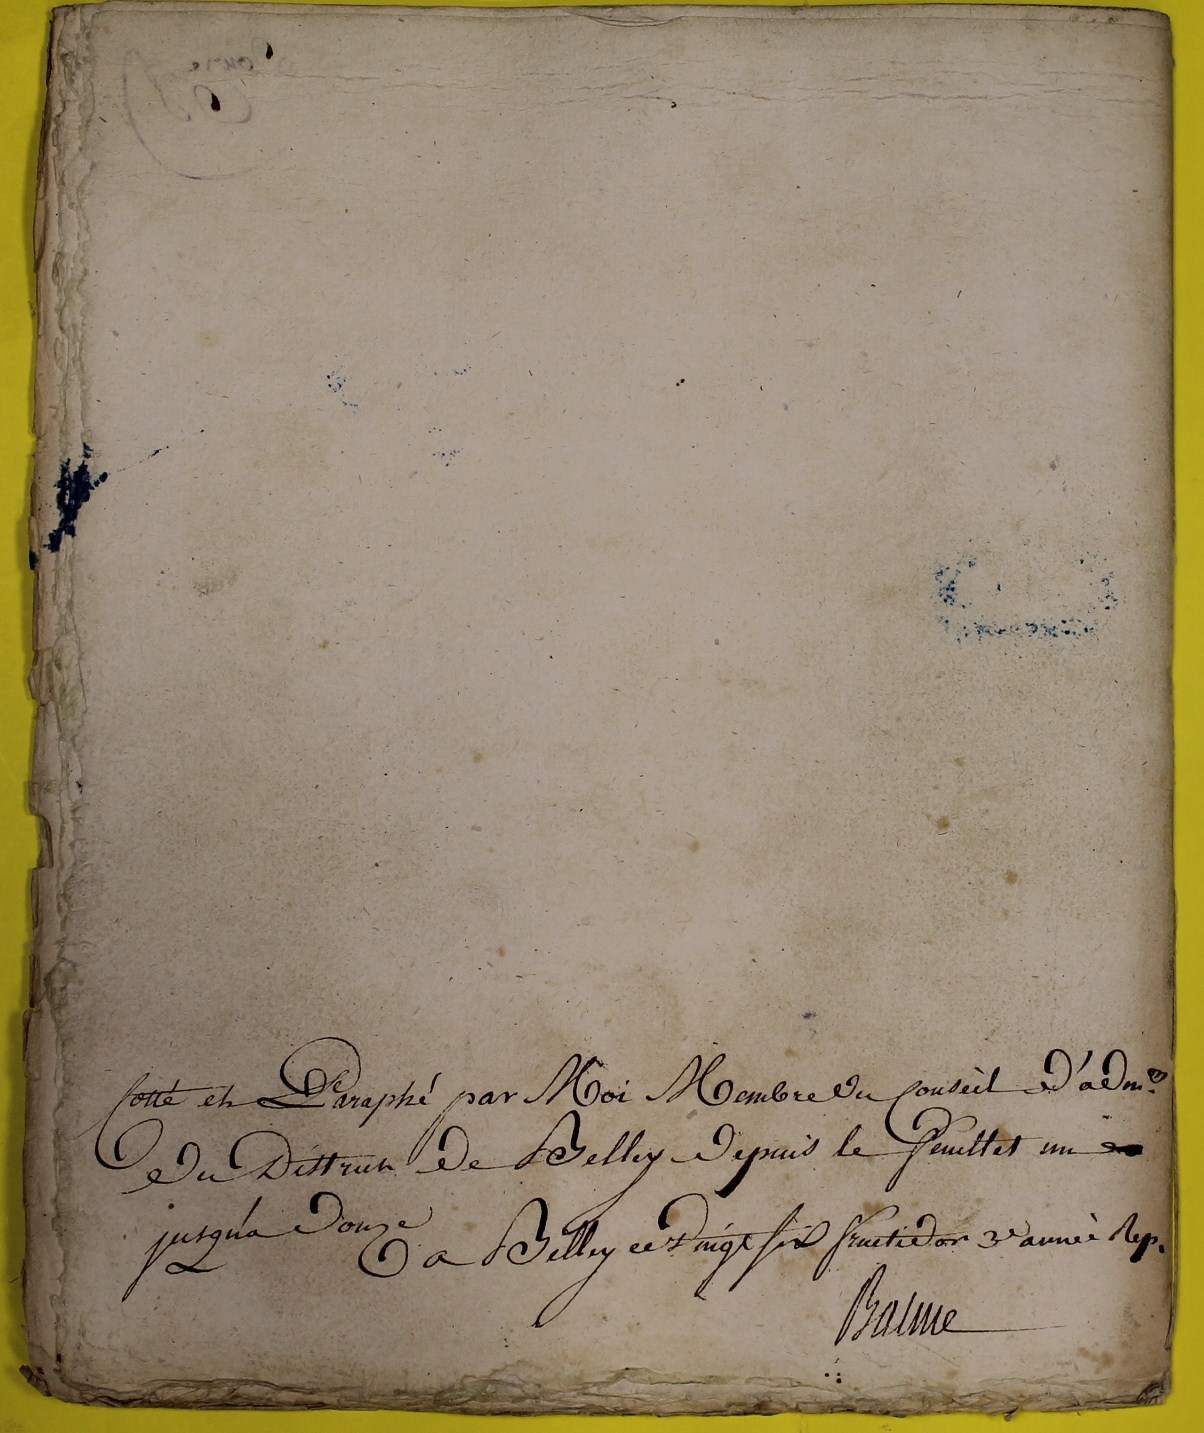 Cotté et Paraphé par Moi Membre du Conseil d'adm.on
du District de Belley depuis le feuillet un
jusqu'a douze
a Belley ce vingt six fructidor 3e année Rep.